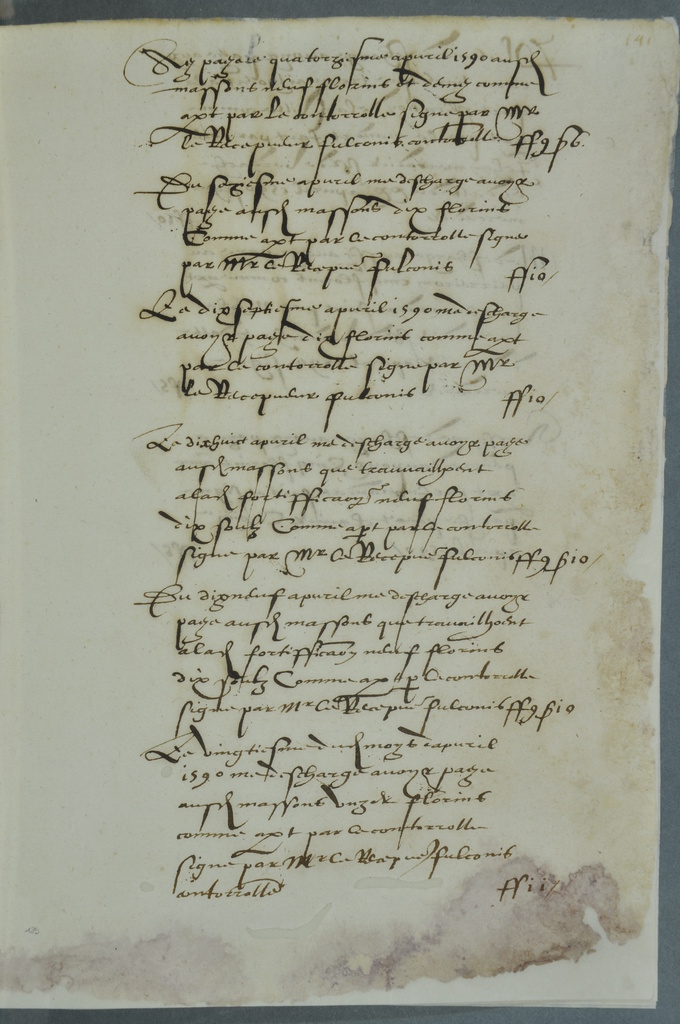 payé le quatorziesme apuril 1590 ausd
massons neuf florins et demy comme
apt par le contorrolle signe par Mr
le Recepueur fulconis contorrolle ff 9 ß 6
Du seziesme apuril me descharge avoyr
paye ausd massons dix florins
Comme apt par le contorrolle signe
par Mr le Recepueur fulconis ff 10/
Le dix septiesme apuril 1590 me descharge
avoyr paye dix florins comme apt
par le contorrolle signe par Mr
le Recepueur fulconis ff 10/
Le dixhuict apuril me descharge avoyr paye
ausd massons que travailhoent
a lad fortifficaon neuf florins
dix soulz Comme apt par le contorrolle
signe par Mr le Recepuer fulconis ff 9 ß 10/
Du dixneuf apuril me descharge avoyr
paye ausd massons que travailhoent
a lad fortifficaon neuf florins
dix soulz Comme apt p le contorrolle
signe par Mr le Recepuer fulconis ff 9 ß 10
Le vingtiesme dud moys dapuril
1590 me descharge avoyr paye
ausd massons unze florins
comme apt par le contorrolle
signe par Mr le Recepuer fulconis
contorrolle ff 11/